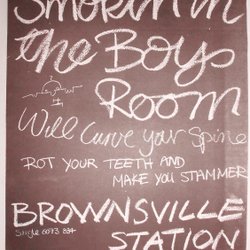 Smokin in
the Boys
Room
Will Curve your Spine
ROT YOUR TEETH AND
MAKE YOU STAMMER
BROWNSVILLE
Single 6073 834
STATION